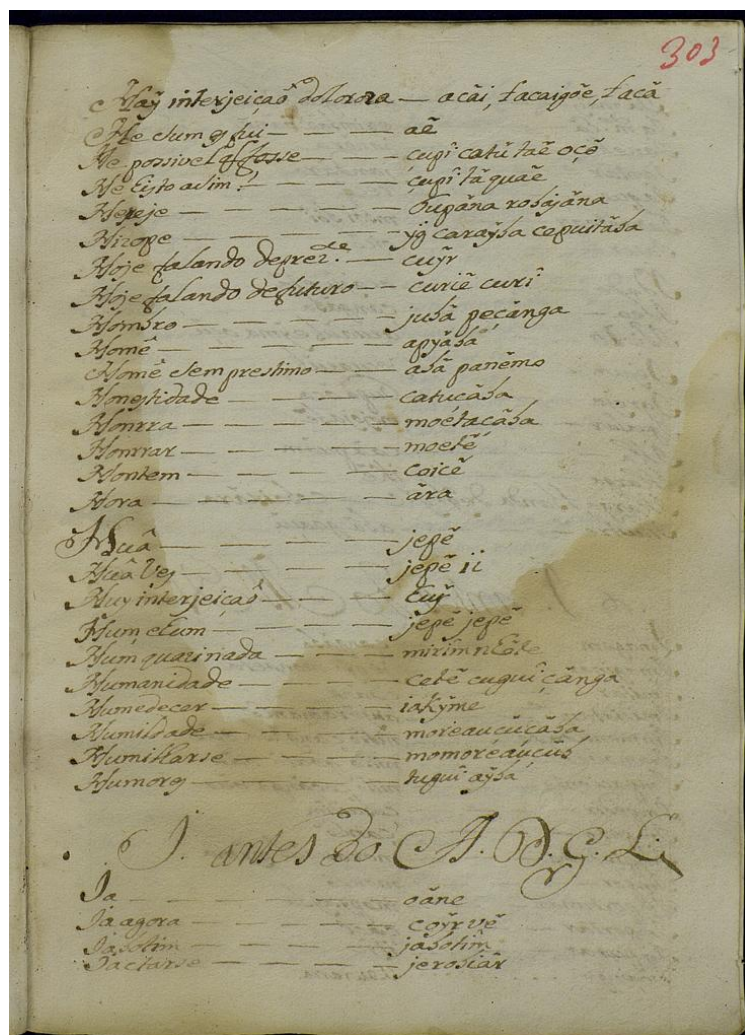 303
Haӯ interjeiçaõ dolorosa — acãi, tacaigõe, tacã
He hum q̃ fui — — — aẽ
He possivel q̃ fosse — — — cupî catú taẽ oçẽ
He isto asim? — — — cupî tã quaẽ
Hereje — — — — Tupãna robajãna
Hizope — — — — ӯg caraӯba cepuitãba
Hoje falando deprez.te — cuӯr
Hoje falando defuturo — curiẽ curî
Hombro — — — — jubã peçãnga
Homẽ — — — — apӯãbá
Homẽ sem prestimo — — abã panẽmo
Honestidade — — — catucãba
Honrra — — — — moétacãba
Honrrar — — — — moetẽ
Hontem — — — — coicẽ
Hora — — — — ãra
Huã — — — — jepẽ
Huã vez — — — — jepẽ ii
Huy interjeiçaõ — — — tuӯ
Hum e hum — — — jepẽ jepẽ
Hum quazi nada — — — mirim
Humanidade — — — cetẽ cuguî çãnga
Humedecer — — — iakӯme
Humildade — — — moreaucúçãba
Humilharse — — — momoréaúcúb
Humores — — — tuguî aӯba
J. antes do A. D. G. L.
Ja — — — — oãne
Ja agora — — — — coӯr vẽ
Jabótim — — — — jabótim
Jactarse — — — — jerobiãr